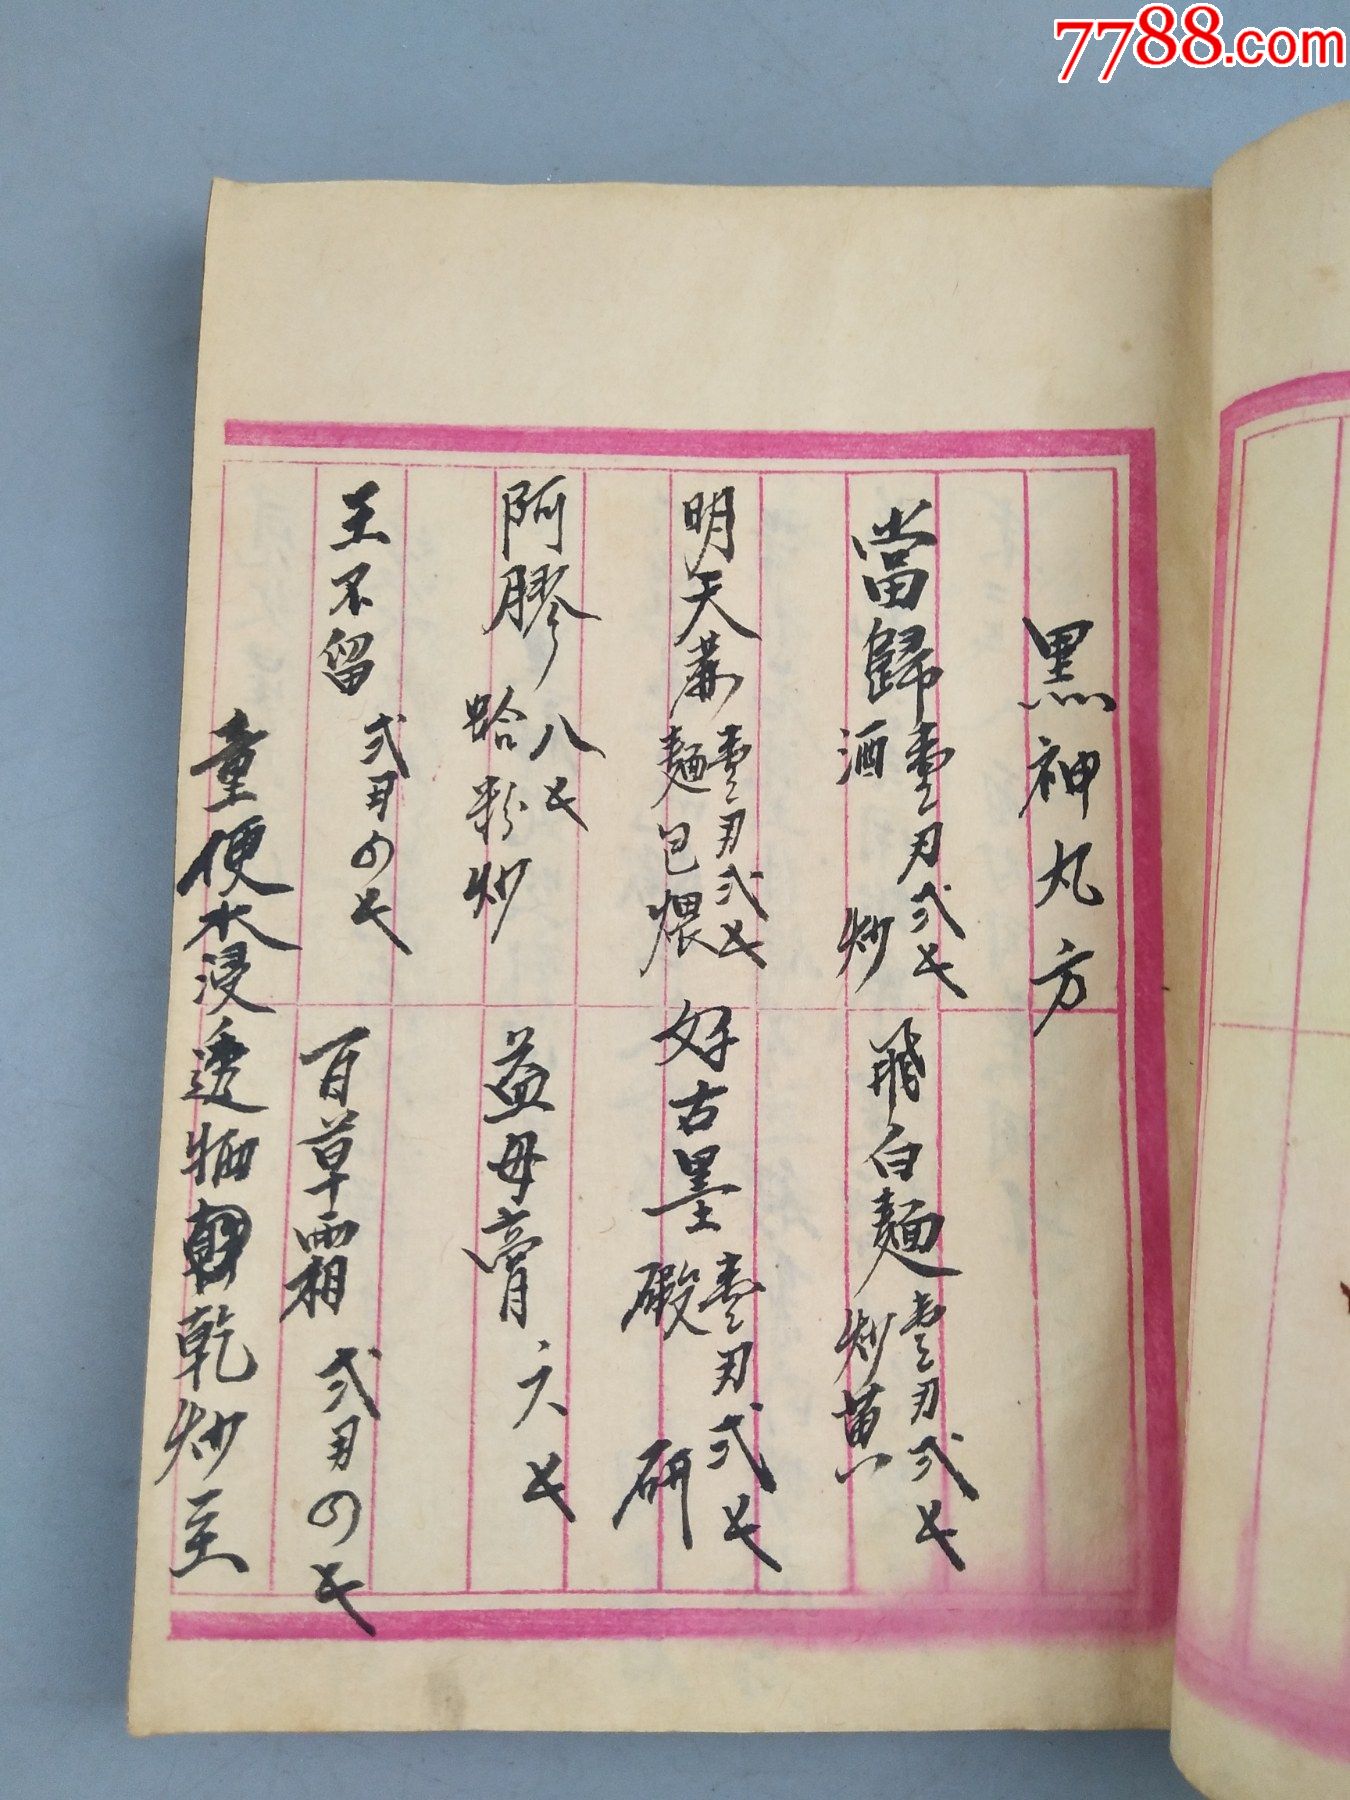 7788.com
黑神丸方
當歸 壹刃弍七 酒炒
飛白麵 壹刃弍七 炒黄
明天蔴 壹刃弍七 麵包煨
好古墨 壹刃弍七 煅研
阿膠 八七 蛤粉炒
益母膏 六七
王不留 弍刃四七
百草霜 弍刃四七
童便水浸透晒乾炒至